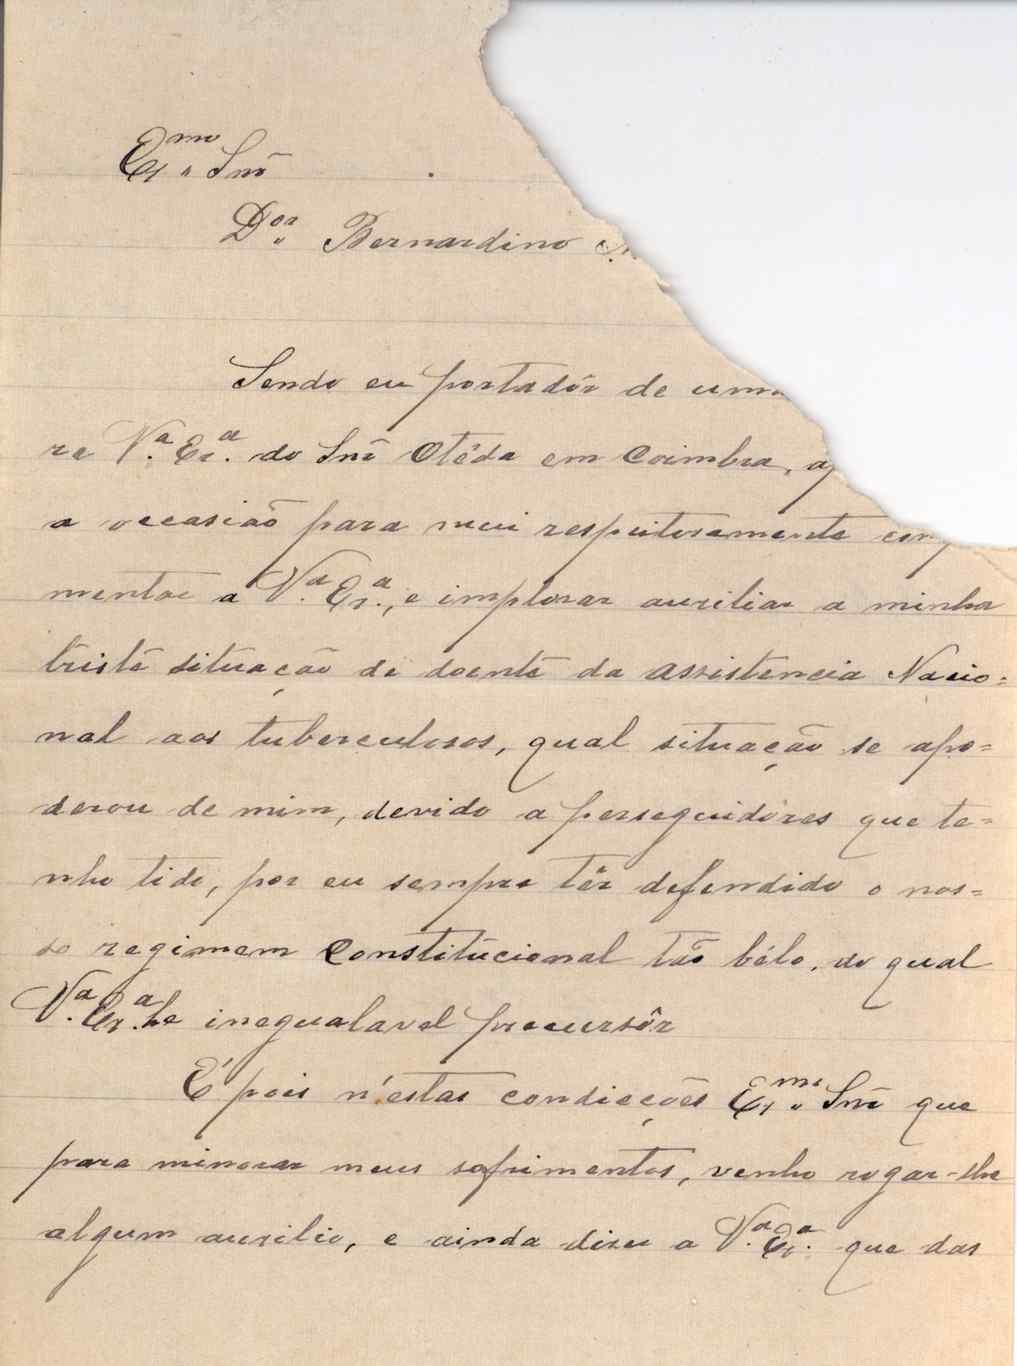 Ex.mo Snr
Dor. Bernardino
Sendo eu portadôr de uma
ra V.a Ex.a do Snr Otéda em Coimbra,
a occasião para mui respeitosamente
mentar a V.a Ex.a, e implorar auxiliar a minha
triste situação de doente da Assistencia Nacio=
nal aos tuberculosos, qual situação se apo=
derou de mim, devido a perseguidôres que te=
nho tido, por eu sempre têr defendido o nos=
so regimem Constitucional tão bélo, do qual
V.a Ex.a he inegualavel precursôr
É pois n'estas condicções Ex.mo Snr que
para minorar meus sofrimentos, venho rogar-lhe
algum auxilio, e ainda dizer a V.a Ex.a que das